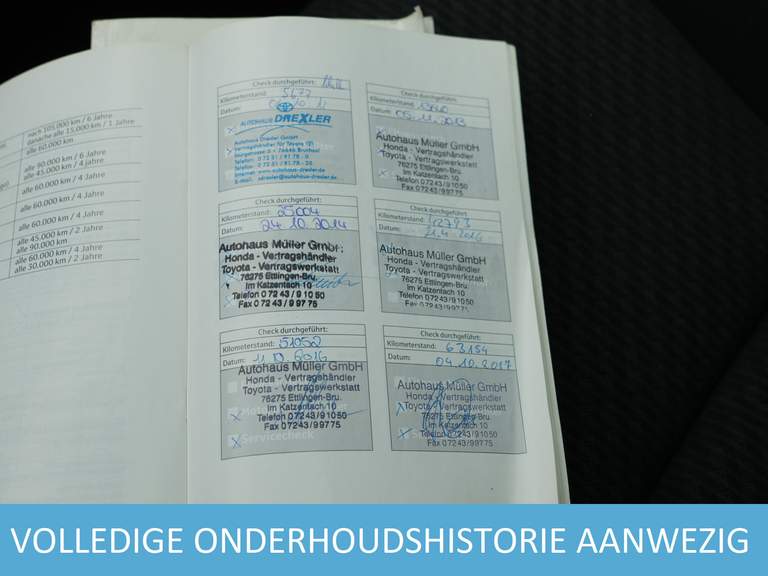 nach 105.000 km / 6 Jahre
danach alle 15.000 km / 1 Jahre
alle 60.000 km
alle 90.000 km / 6 Jahre
alle 45.000 km / 4 Jahre
alle 60.000 km / 4 Jahre
alle 60.000 km / 4 Jahre
alle 60.000 km / 4 Jahre
alle 45.000 km / 2 Jahre
alle 90.000 km
alle 60.000 km / 4 Jahre
alle 30.000 km / 2 Jahre
Check durchgeführt:
Kilometerstand: 5677
Datum:
AUTOHAUS DREXLER
Autohaus Drexler GmbH
Vertragshändler für Toyota
76646 Bruchsal
Internet: www.autohaus-drexler.de
Check durchgeführt:
Kilometerstand:
Datum: 05.11.2013
Autohaus Müller GmbH
Honda - Vertragshändler
Toyota - Vertragswerkstatt
76275 Ettlingen-Bru.
Im Katzentach 10
Telefon 0 72 43 / 9 10 50
Fax 0 72 43 / 9 97 75
Check durchgeführt:
Kilometerstand: 25004
Datum: 24.10.2014
Autohaus Müller GmbH
Honda - Vertragshändler
Toyota - Vertragswerkstatt
76275 Ettlingen-Bru.
Im Katzentach 10
Telefon 0 72 43 / 9 10 50
Fax 0 72 43 / 9 97 75
Check durchgeführt:
Kilometerstand:
Datum:
Autohaus Müller GmbH
Honda - Vertragshändler
Toyota - Vertragswerkstatt
76275 Ettlingen-Bru.
Im Katzentach 10
Telefon 0 72 43 / 9 10 50
Fax 0 72 43 / 9 97 75
Check durchgeführt:
Kilometerstand: 51052
Datum: 11.10.2016
Autohaus Müller GmbH
Honda - Vertragshändler
Toyota - Vertragswerkstatt
76275 Ettlingen-Bru.
Im Katzentach 10
Telefon 0 72 43 / 9 10 50
Fax 0 72 43 / 9 97 75
Servicecheck
Check durchgeführt:
Kilometerstand: 63154
Datum: 04.10.2017
Autohaus Müller GmbH
Honda - Vertragshändler
Toyota - Vertragswerkstatt
76275 Ettlingen-Bru.
Im Katzentach 10
Telefon 0 72 43 / 9 10 50
Fax 0 72 43 / 9 97 75
VOLLEDIGE ONDERHOUDSHISTORIE AANWEZIG